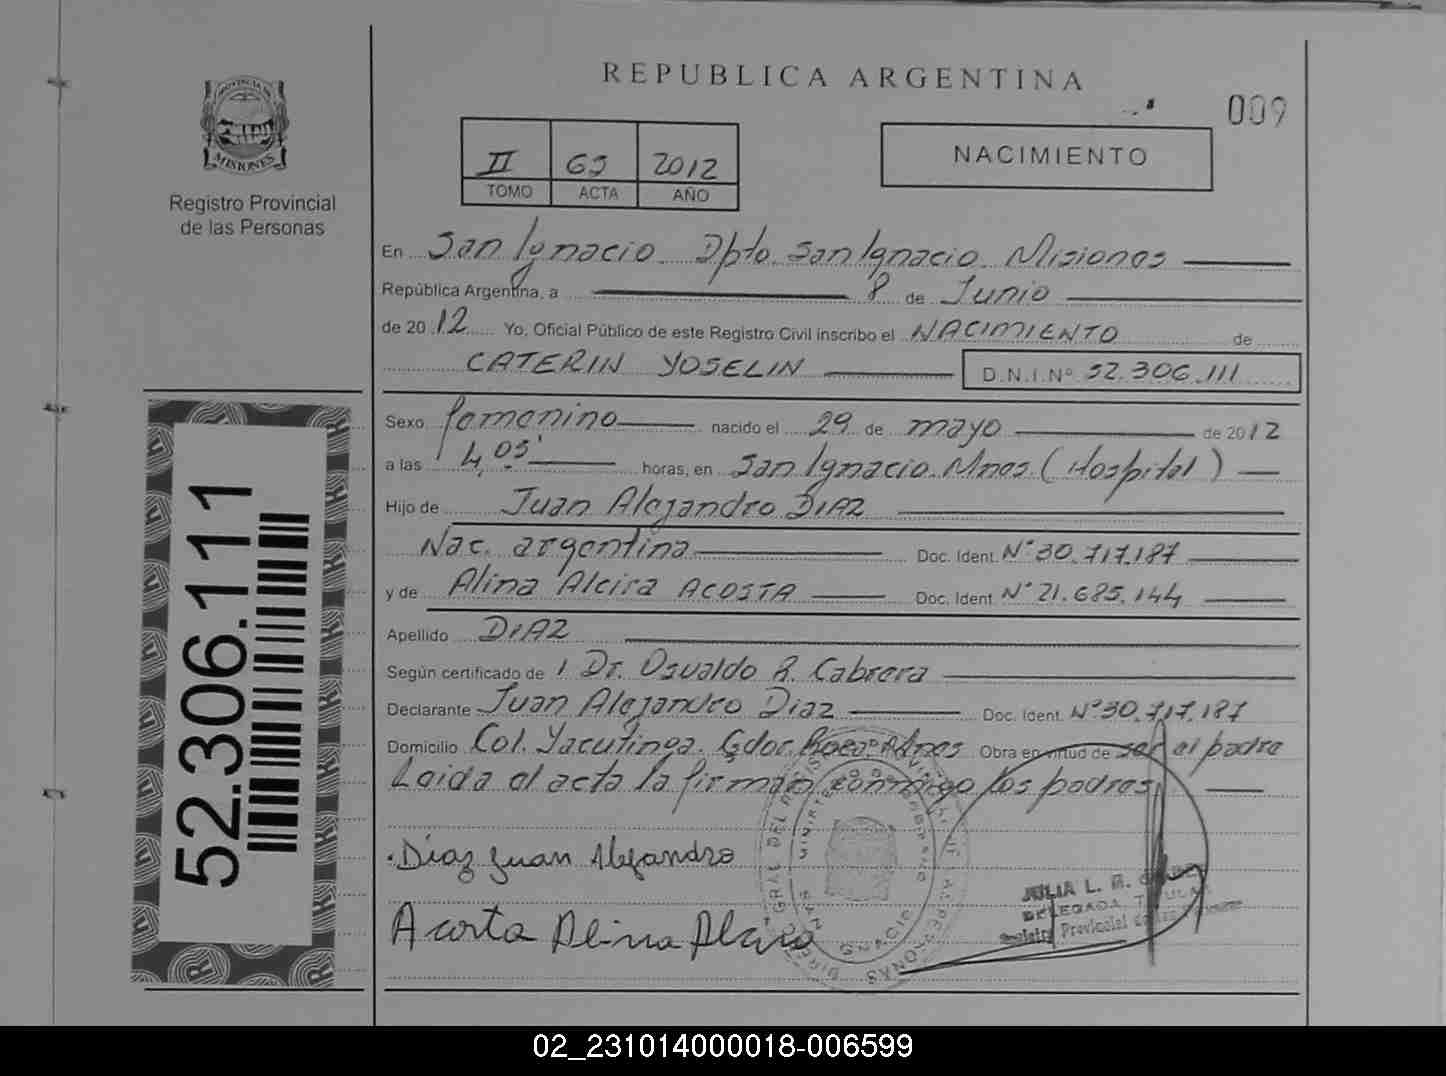 REPUBLICA ARGENTINA
009
PROVINCIA DE
MISIONES
Registro Provincial
de las Personas
II 63 2012
TOMO ACTA AÑO
NACIMIENTO
En San Ignacio. Dpto. San Ignacio. Misiones
República Argentina, a 8 de Junio
de 2012 Yo, Oficial Público de este Registro Civil inscribo el NACIMIENTO de
CATERIN YOSELIN D.N.I.Nº 52.306.111
Sexo femenino nacido el 29 de mayo de 2012
a las 4,05' horas, en San Ignacio. Mnes. (Hospital)
Hijo de Juan Alejandro DIAZ
Nac. argentina Doc. Ident. Nº 30.717.187
y de Alina Alcira ACOSTA Doc. Ident. Nº 21.685.144
Apellido DIAZ
Según certificado de Dr. Osvaldo R. Cabrera
Declarante Juan Alejandro Diaz Doc. Ident. Nº 30.717.187
Domicilio Col. Yacutinga. Gdor. Roca. Mnes Obra en virtud de ser el padre
Leida el acta la firman conmigo los padres.
Diaz Juan Alejandro
Acosta Alina Alcira
SAN IGNACIO
JULIA L. M.
DELEGADA TITULAR
Registro Provincial de las Personas
52.306.111
02_231014000018-006599